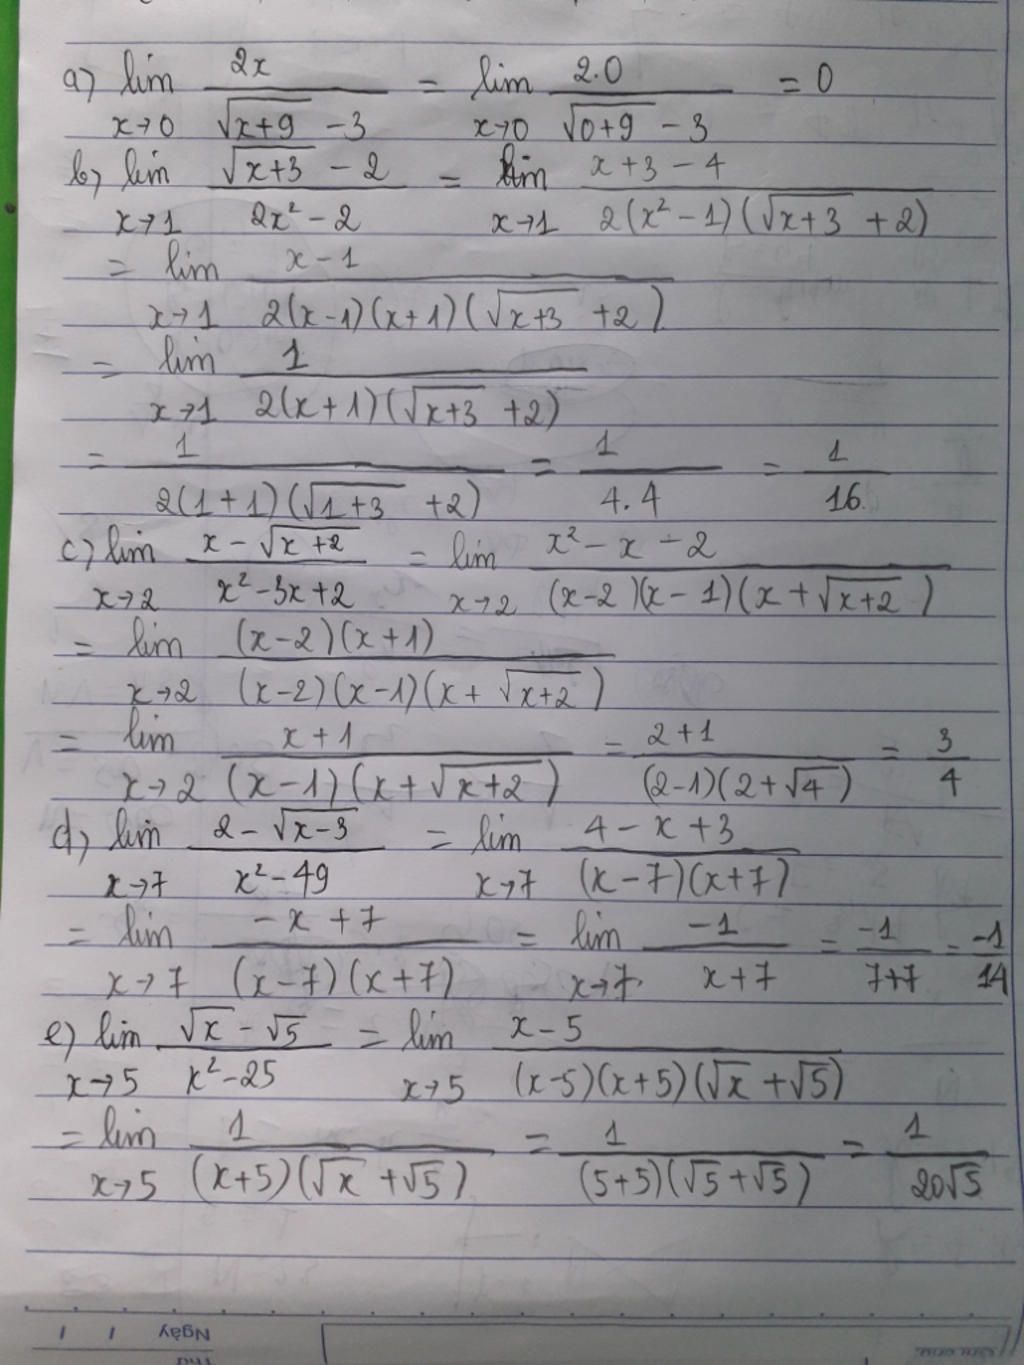 a) lim x→0 2x / (√(x+9) - 3) = lim x→0 2.0 / (√(0+9) - 3) = 0
b) lim x→1 (√(x+3) - 2) / (2x² - 2) = lim x→1 (x+3-4) / (2(x²-1)(√(x+3) + 2))
= lim x→1 (x-1) / (2(x-1)(x+1)(√(x+3) + 2))
= lim x→1 1 / (2(x+1)(√(x+3) + 2))
= 1 / (2(1+1)(√(1+3) + 2)) = 1 / (4.4) = 1/16
c) lim x→2 (x - √(x+2)) / (x² - 3x + 2) = lim x→2 (x² - x - 2) / ((x-2)(x-1)(x + √(x+2)))
= lim x→2 (x-2)(x+1) / ((x-2)(x-1)(x + √(x+2)))
= lim x→2 (x+1) / ((x-1)(x + √(x+2))) = (2+1) / ((2-1)(2+√4)) = 3/4
d) lim x→7 (2 - √(x-3)) / (x² - 49) = lim x→7 (4 - x + 3) / ((x-7)(x+7))
= lim x→7 (-x+7) / ((x-7)(x+7)) = lim x→7 -1 / (x+7) = -1 / (7+7) = -1/14
e) lim x→5 (√x - √5) / (x² - 25) = lim x→5 (x-5) / ((x-5)(x+5)(√x + √5))
= lim x→5 1 / ((x+5)(√x + √5)) = 1 / ((5+5)(√5 + √5)) = 1 / (20√5)
Ngày / /
Thứ